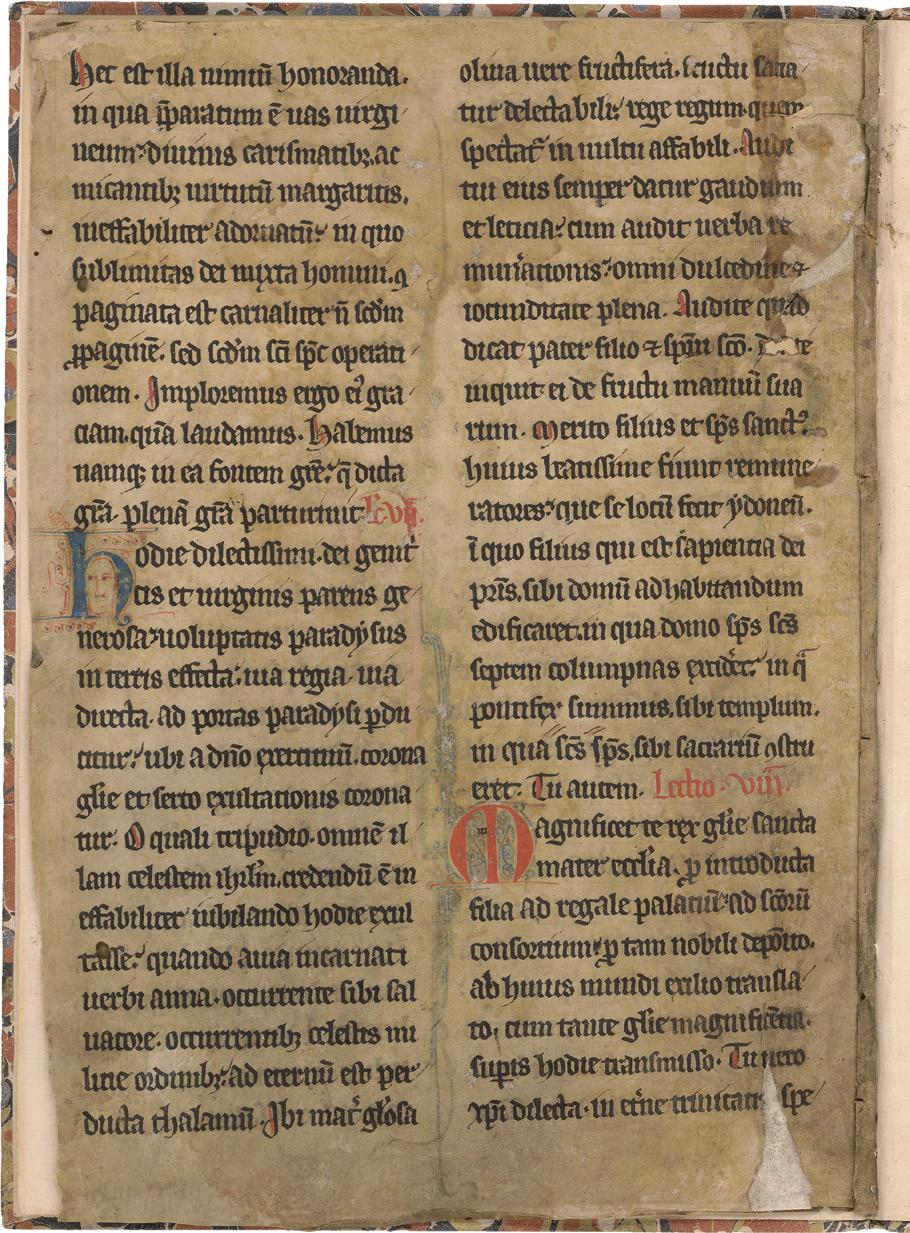 Hec est illa nimiũ honoranda.
in qua p̄paratum ē uas uirgi
neum: diuinis carismatibꝫ. ac
micantibꝫ uirtutũ margaritis.
ineffabiliter adornatũ: in quo
sublimitas dei iuxta homini. ꝯ
paginata est carnaliter ñ scđm
ꝓpaginē. sed scđm sc̄i sp̄c operati
onem. Imploremus ergo eiꝰ gra
ciam. quā laudamus. Habemus
namqꝫ in ea fontem gr̄e: q̄ dicta
gr̄a plenā gr̄a parturiuit. Lc̄. vij.
Hodie dilectissimi. dei genit
cis et uirginis parens ge
nerosa: uoluptatis paradẏsus
in terris effecta: uia regia. uia
directa. ad portas paradẏsi ꝑdu
citur: ubi a dño exercituũ. corona
glīe et serto exultationis corona
tur. O quali tripudio. omnē il
lam celestem ihrl̄m. credendũ ē in
effabiliter iubilando hodie exul
tasse: quando auia incarnati
uerbi anna. occurrente sibi sal
uatore. occurrentibꝫ celestis mi
licie ordinibꝫ: ad eternũ est per
ducta thalamũ. Ibi mat̄ gl̄osa
oliua uere fructifera. fructu sacia
tur delectabili: rege regum. quem
spectat̄ in uultu affabili. Audi
tui eius semper datur gaudium
et leticia: cum audit uerba re
mun̄ationis: omni dulcedine ⁊
iocunditate plena. Audite quid
dicat pater filio ⁊ sp̄ui sc̄o. Date
inquit ei de fructu manuũ sua
rum. Merito filius et sp̄s sanctꝰ
huius beatissime fiunt remune
ratores: que se locũ fecit ẏdoneũ.
ī quo filius qui est sapientia dei
pr̄is. sibi domũ ad habitandum
edificaret. in qua domo sp̄s sc̄s
septem columpnas excid̄et: in q̄
pontifex summus. sibi templum.
in qua sc̄s sp̄s. sibi sacrariũ ꝯstru
eret. Tu autem. Lectio. viij.
Magnificet te rex glīe sancta
mater eccl̄ia. ꝓ introducta
filia ad regale palaciũ: ad sc̄orũ
consortium: ꝓ tam nobili depõito.
ab huius mundi exilio transla
to. cum tante glīe magnificētia.
suꝑis hodie transmisso. Tu uero
xp̄i dilecta. in et̄ne trinitatis spe